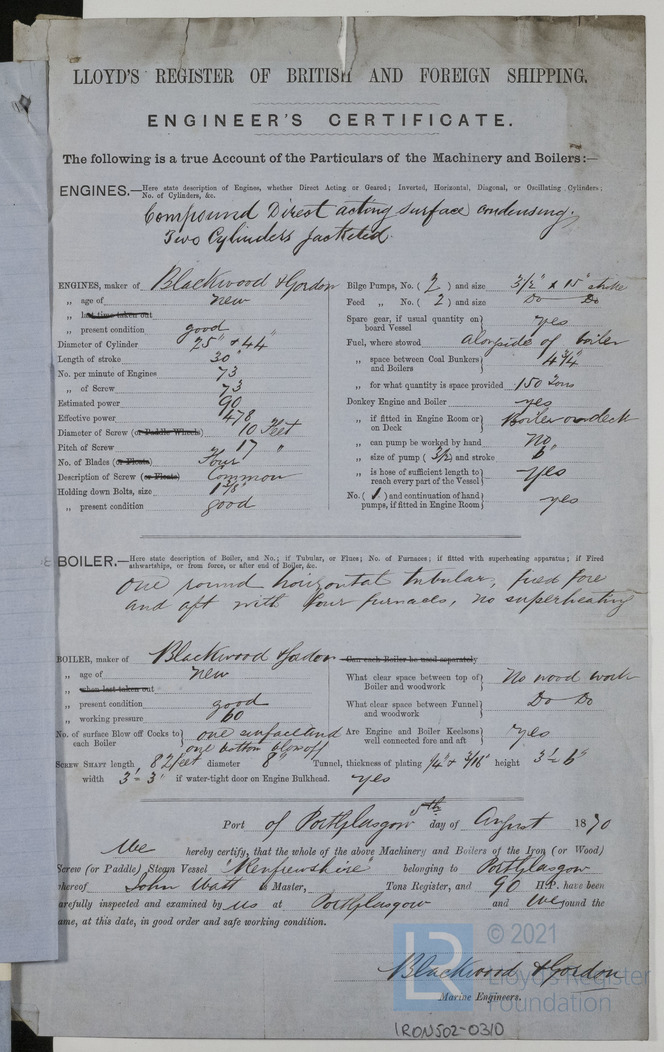 LLOYD'S REGISTER OF BRITISH AND FOREIGN SHIPPING.
ENGINEER'S CERTIFICATE.
The following is a true Account of the Particulars of the Machinery and Boilers:—
ENGINES.—Here state description of Engines, whether Direct Acting or Geared; Inverted, Horizontal, Diagonal, or Oscillating Cylinders; No. of Cylinders, &c.
Compound Direct acting surface condensing,
Two Cylinders jacketed.
ENGINES, maker of Blackwood & Gordon
„ age of new
„ last time taken out
„ present condition good
Diameter of Cylinder 25" & 44"
Length of stroke 30"
No. per minute of Engines 73
„ of Screw 73
Estimated power 90
Effective power 478
Diameter of Screw (or Paddle Wheels) 10 Feet
Pitch of Screw 17 "
No. of Blades (or Floats) Four
Description of Screw (or Floats) Common
Holding down Bolts, size 1 3/8"
„ present condition good
Bilge Pumps, No. ( 2 ) and size 3 1/2" x 15" stroke
Feed „ No. ( 2 ) and size Do Do
Spare gear, if usual quantity on board Vessel yes
Fuel, where stowed alongside of boiler
„ space between Coal Bunkers and Boilers
„ for what quantity is space provided 150 Tons
Donkey Engine and Boiler yes
„ if fitted in Engine Room or on Deck Boiler on deck
„ can pump be worked by hand No
„ size of pump ( 3 1/2 ) and stroke 6"
„ is hose of sufficient length to reach every part of the Vessel yes
No. ( 1 ) and continuation of hand pumps, if fitted in Engine Room yes
BOILER.—Here state description of Boiler, and No.; if Tubular, or Flues; No. of Furnaces; if fitted with superheating apparatus; if Fired athwartships, or from force, or after end of Boiler, &c.
One round horizontal tubular, fired fore
and aft with four furnaces, no superheating
BOILER, maker of Blackwood & Gordon
„ age of new
„ when last taken out
„ present condition good
„ working pressure 60
No. of surface Blow off Cocks to each Boiler one surface and one bottom blow off
Can each Boiler be used separately
What clear space between top of Boiler and woodwork No wood work
What clear space between Funnel and woodwork Do Do
Are Engine and Boiler Keelsons well connected fore and aft yes
SCREW SHAFT length 82 feet diameter 8" Tunnel, thickness of plating 1/4 & 3/16" height 3'- 6"
width 3'- 3" if water-tight door on Engine Bulkhead. yes
Port of PortGlasgow 5th day of August 1870
We hereby certify, that the whole of the above Machinery and Boilers of the Iron (or Wood)
Screw (or Paddle) Steam Vessel "Renfrewshire" belonging to PortGlasgow
whereof John Watt is Master, Tons Register, and 90 H.P. have been
carefully inspected and examined by us at PortGlasgow and We found the
same, at this date, in good order and safe working condition.
Blackwood & Gordon
Marine Engineers.
LR
© 2021
Lloyd's Register
Foundation
IRON502-0310